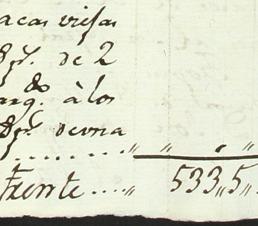 acas viejas
de 2
do
arq. à los
de una
........ „ „ „ „
Frente .... „ 533„5„